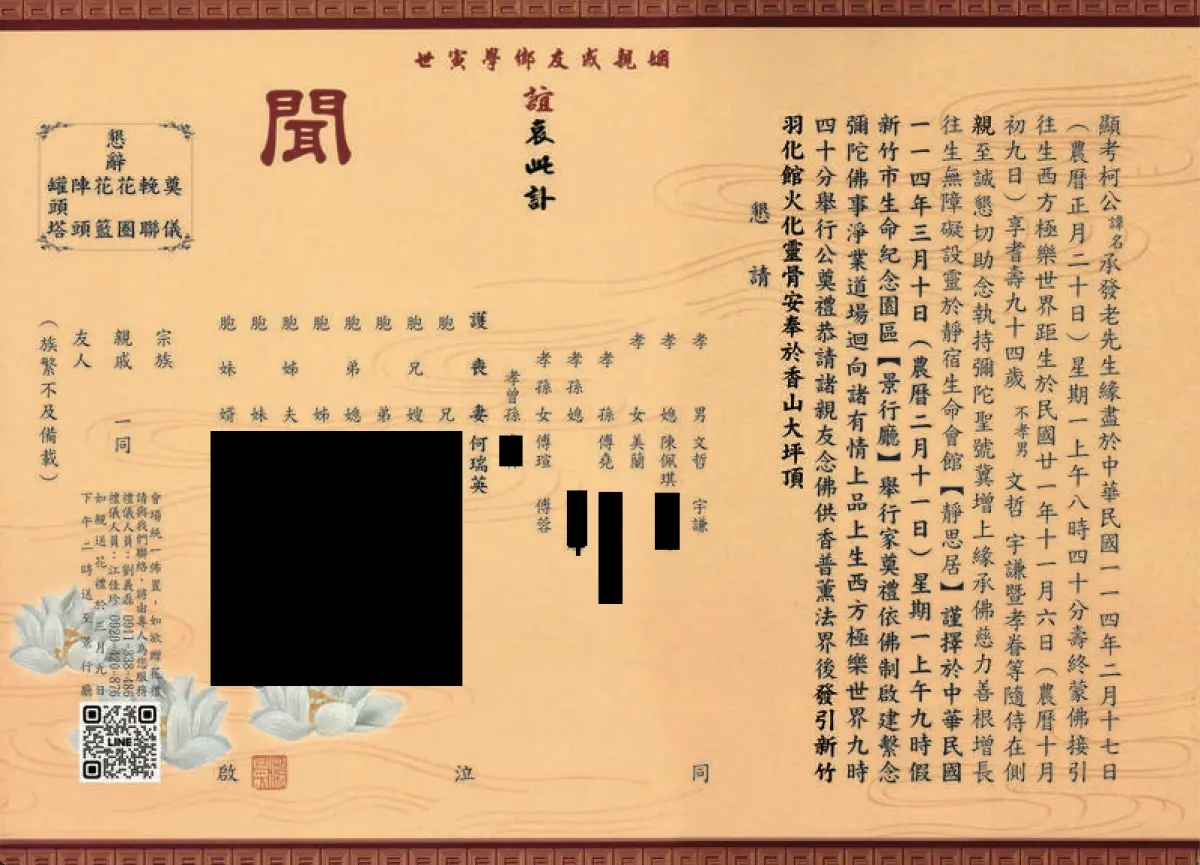 顯考柯公諱名承發老先生緣盡於中華民國一一四年二月十七日
（農曆正月二十日）星期一上午八時四十分壽終蒙佛接引
往生西方極樂世界距生於民國廿一年十一月六日（農曆十月
初九日）享耆壽九十四歲 不孝男 文哲 宇謙暨孝眷等隨侍在側
親至誠懇切助念執持彌陀聖號冀增上緣承佛慈力善根增長
往生無障礙設靈於靜宿生命會館【靜思居】謹擇於中華民國
一一四年三月十日（農曆二月十一日）星期一上午九時假
新竹市生命紀念園區【景行廳】舉行家奠禮依佛制啟建繫念
彌陀佛事淨業道場迴向諸有情上品上生西方極樂世界九時
四十分舉行公奠禮恭請諸親友念佛供香普薰法界後發引新竹
羽化館火化靈骨安奉於香山大坪頂
懇請
姻親戚友鄉學寅世
誼哀此訃
聞
孝男 文哲 宇謙
孝媳 陳佩琪
孝女 美蘭
孝孫 傅堯
孝孫媳
孝孫女 傅瑄 傅蓉
孝曾孫
護喪妻 何瑞英
胞兄
胞兄嫂
胞弟
胞弟媳
胞姊
胞姊夫
胞妹
胞妹婿
同泣啟
宗族
親戚 一同
友人
（族繁不及備載）
懇辭
奠儀
輓聯
花圈
花籃
陣頭
罐頭塔
會場統一佈置，如欲贈花禮
請與我們聯絡，將由專人為您服務
禮儀人員：劉義磊 0911-838-486
禮儀人員：江佳珍 0920-420-876
如親送花禮於三月九日
下午二時送至景行廳
LINE